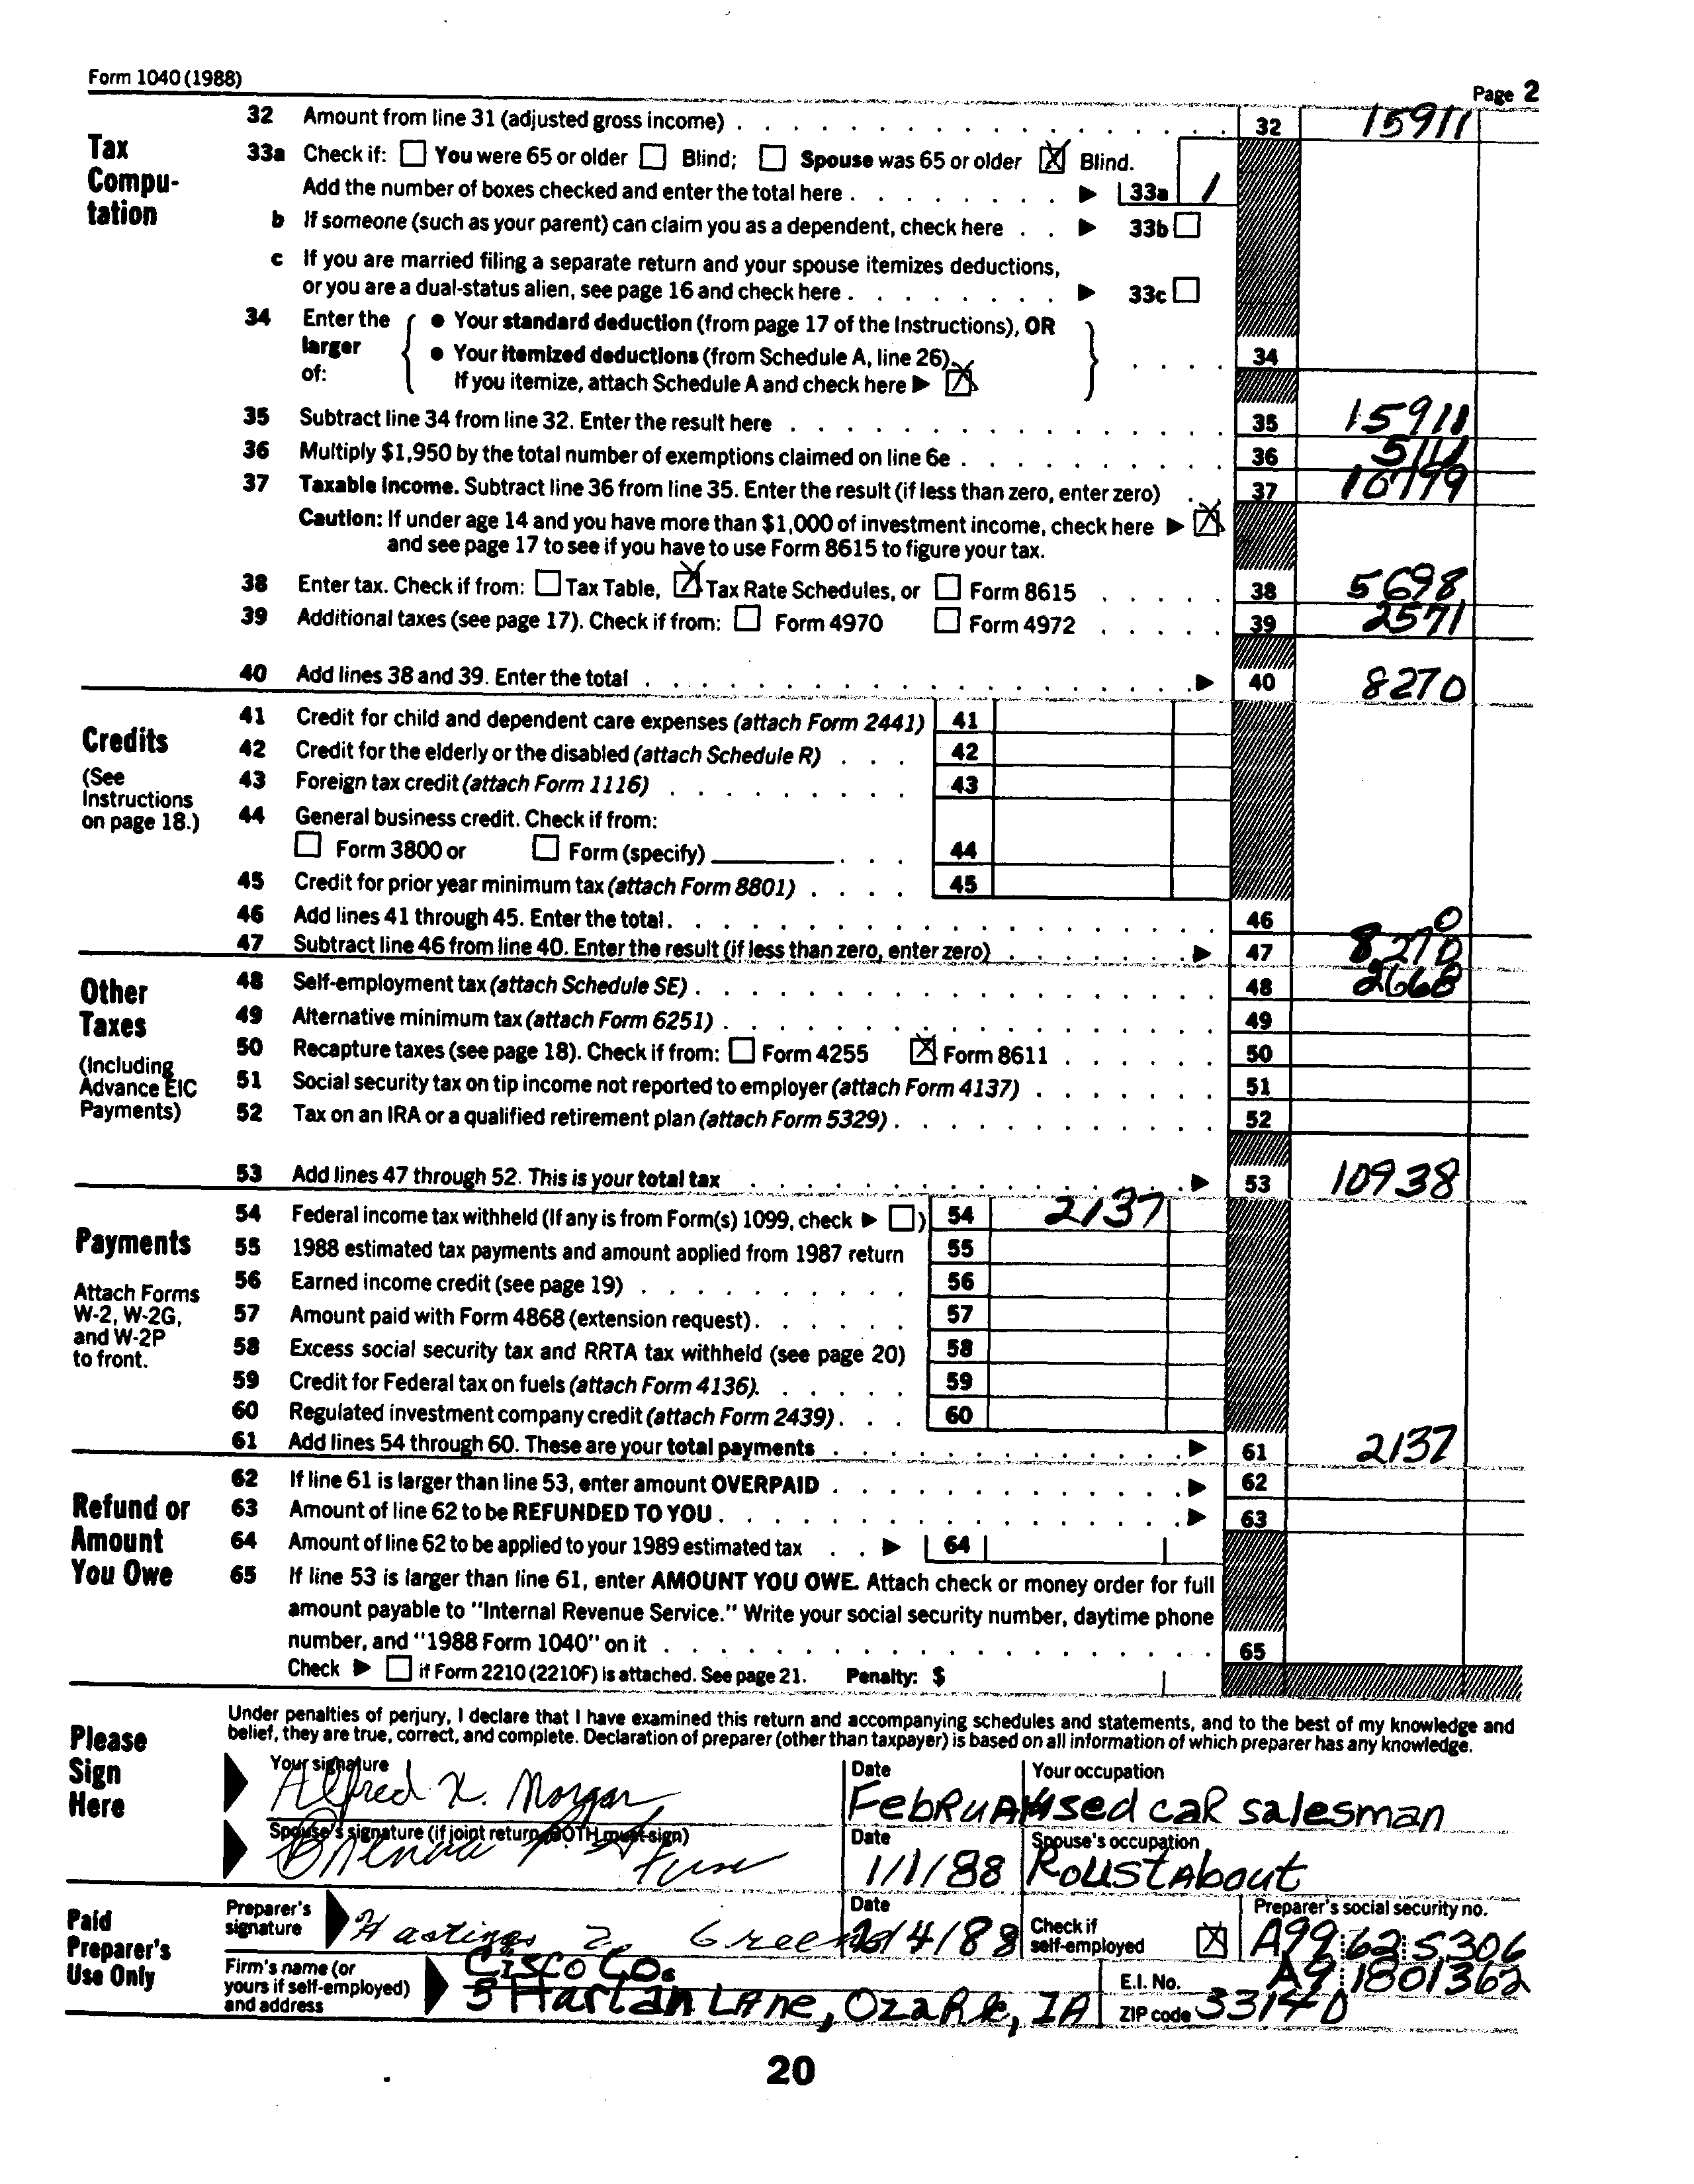 Form 1040 (1988)
Page 2
Tax Compu-tation
32 Amount from line 31 (adjusted gross income) 32 15911
33a Check if: You were 65 or older Blind; Spouse was 65 or older X Blind.
Add the number of boxes checked and enter the total here 33a 1
b If someone (such as your parent) can claim you as a dependent, check here 33b
c If you are married filing a separate return and your spouse itemizes deductions,
or you are a dual-status alien, see page 16 and check here 33c
34 Enter the larger of: { • Your standard deduction (from page 17 of the Instructions), OR
• Your itemized deductions (from Schedule A, line 26). 34
If you itemize, attach Schedule A and check here X
35 Subtract line 34 from line 32. Enter the result here 35 15911
36 Multiply $1,950 by the total number of exemptions claimed on line 6e 36
37 Taxable income. Subtract line 36 from line 35. Enter the result (if less than zero, enter zero) 37 10799
Caution: If under age 14 and you have more than $1,000 of investment income, check here X
and see page 17 to see if you have to use Form 8615 to figure your tax.
38 Enter tax. Check if from: Tax Table, X Tax Rate Schedules, or Form 8615 38 5698
39 Additional taxes (see page 17). Check if from: Form 4970 Form 4972 39 2571
40 Add lines 38 and 39. Enter the total 40 8270
Credits
(See Instructions on page 18.)
41 Credit for child and dependent care expenses (attach Form 2441) 41
42 Credit for the elderly or the disabled (attach Schedule R) 42
43 Foreign tax credit (attach Form 1116) 43
44 General business credit. Check if from:
Form 3800 or Form (specify) 44
45 Credit for prior year minimum tax (attach Form 8801) 45
46 Add lines 41 through 45. Enter the total 46 0
47 Subtract line 46 from line 40. Enter the result (if less than zero, enter zero) 47 8,270
Other Taxes
(Including Advance EIC Payments)
48 Self-employment tax (attach Schedule SE) 48 2668
49 Alternative minimum tax (attach Form 6251) 49
50 Recapture taxes (see page 18). Check if from: Form 4255 X Form 8611 50
51 Social security tax on tip income not reported to employer (attach Form 4137) 51
52 Tax on an IRA or a qualified retirement plan (attach Form 5329) 52
53 Add lines 47 through 52. This is your total tax 53 10938
Payments
Attach Forms W-2, W-2G, and W-2P to front.
54 Federal income tax withheld (If any is from Form(s) 1099, check ) 54 2137
55 1988 estimated tax payments and amount applied from 1987 return 55
56 Earned income credit (see page 19) 56
57 Amount paid with Form 4868 (extension request) 57
58 Excess social security tax and RRTA tax withheld (see page 20) 58
59 Credit for Federal tax on fuels (attach Form 4136). 59
60 Regulated investment company credit (attach Form 2439) 60
61 Add lines 54 through 60. These are your total payments 61 2137
Refund or Amount You Owe
62 If line 61 is larger than line 53, enter amount OVERPAID 62
63 Amount of line 62 to be REFUNDED TO YOU 63
64 Amount of line 62 to be applied to your 1989 estimated tax 64
65 If line 53 is larger than line 61, enter AMOUNT YOU OWE. Attach check or money order for full
amount payable to "Internal Revenue Service." Write your social security number, daytime phone
number, and "1988 Form 1040" on it 65
Check if Form 2210 (2210F) is attached. See page 21. Penalty: $
Please Sign Here
Under penalties of perjury, I declare that I have examined this return and accompanying schedules and statements, and to the best of my knowledge and
belief, they are true, correct, and complete. Declaration of preparer (other than taxpayer) is based on all information of which preparer has any knowledge.
Your signature Date Your occupation
Alfred X. Morgan used car salesman
Spouse's signature (if joint return, BOTH must sign) Date Spouse's occupation
1/1/88 Roustabout
Paid Preparer's Use Only
Preparer's signature Date Check if self-employed X Preparer's social security no.
Hastings A99 62 5306
Firm's name (or yours if self-employed) and address
Cisco Co. E.I. No. A9 1801362
3 Harlan Lane, Ozark, IA ZIP code 33140
20